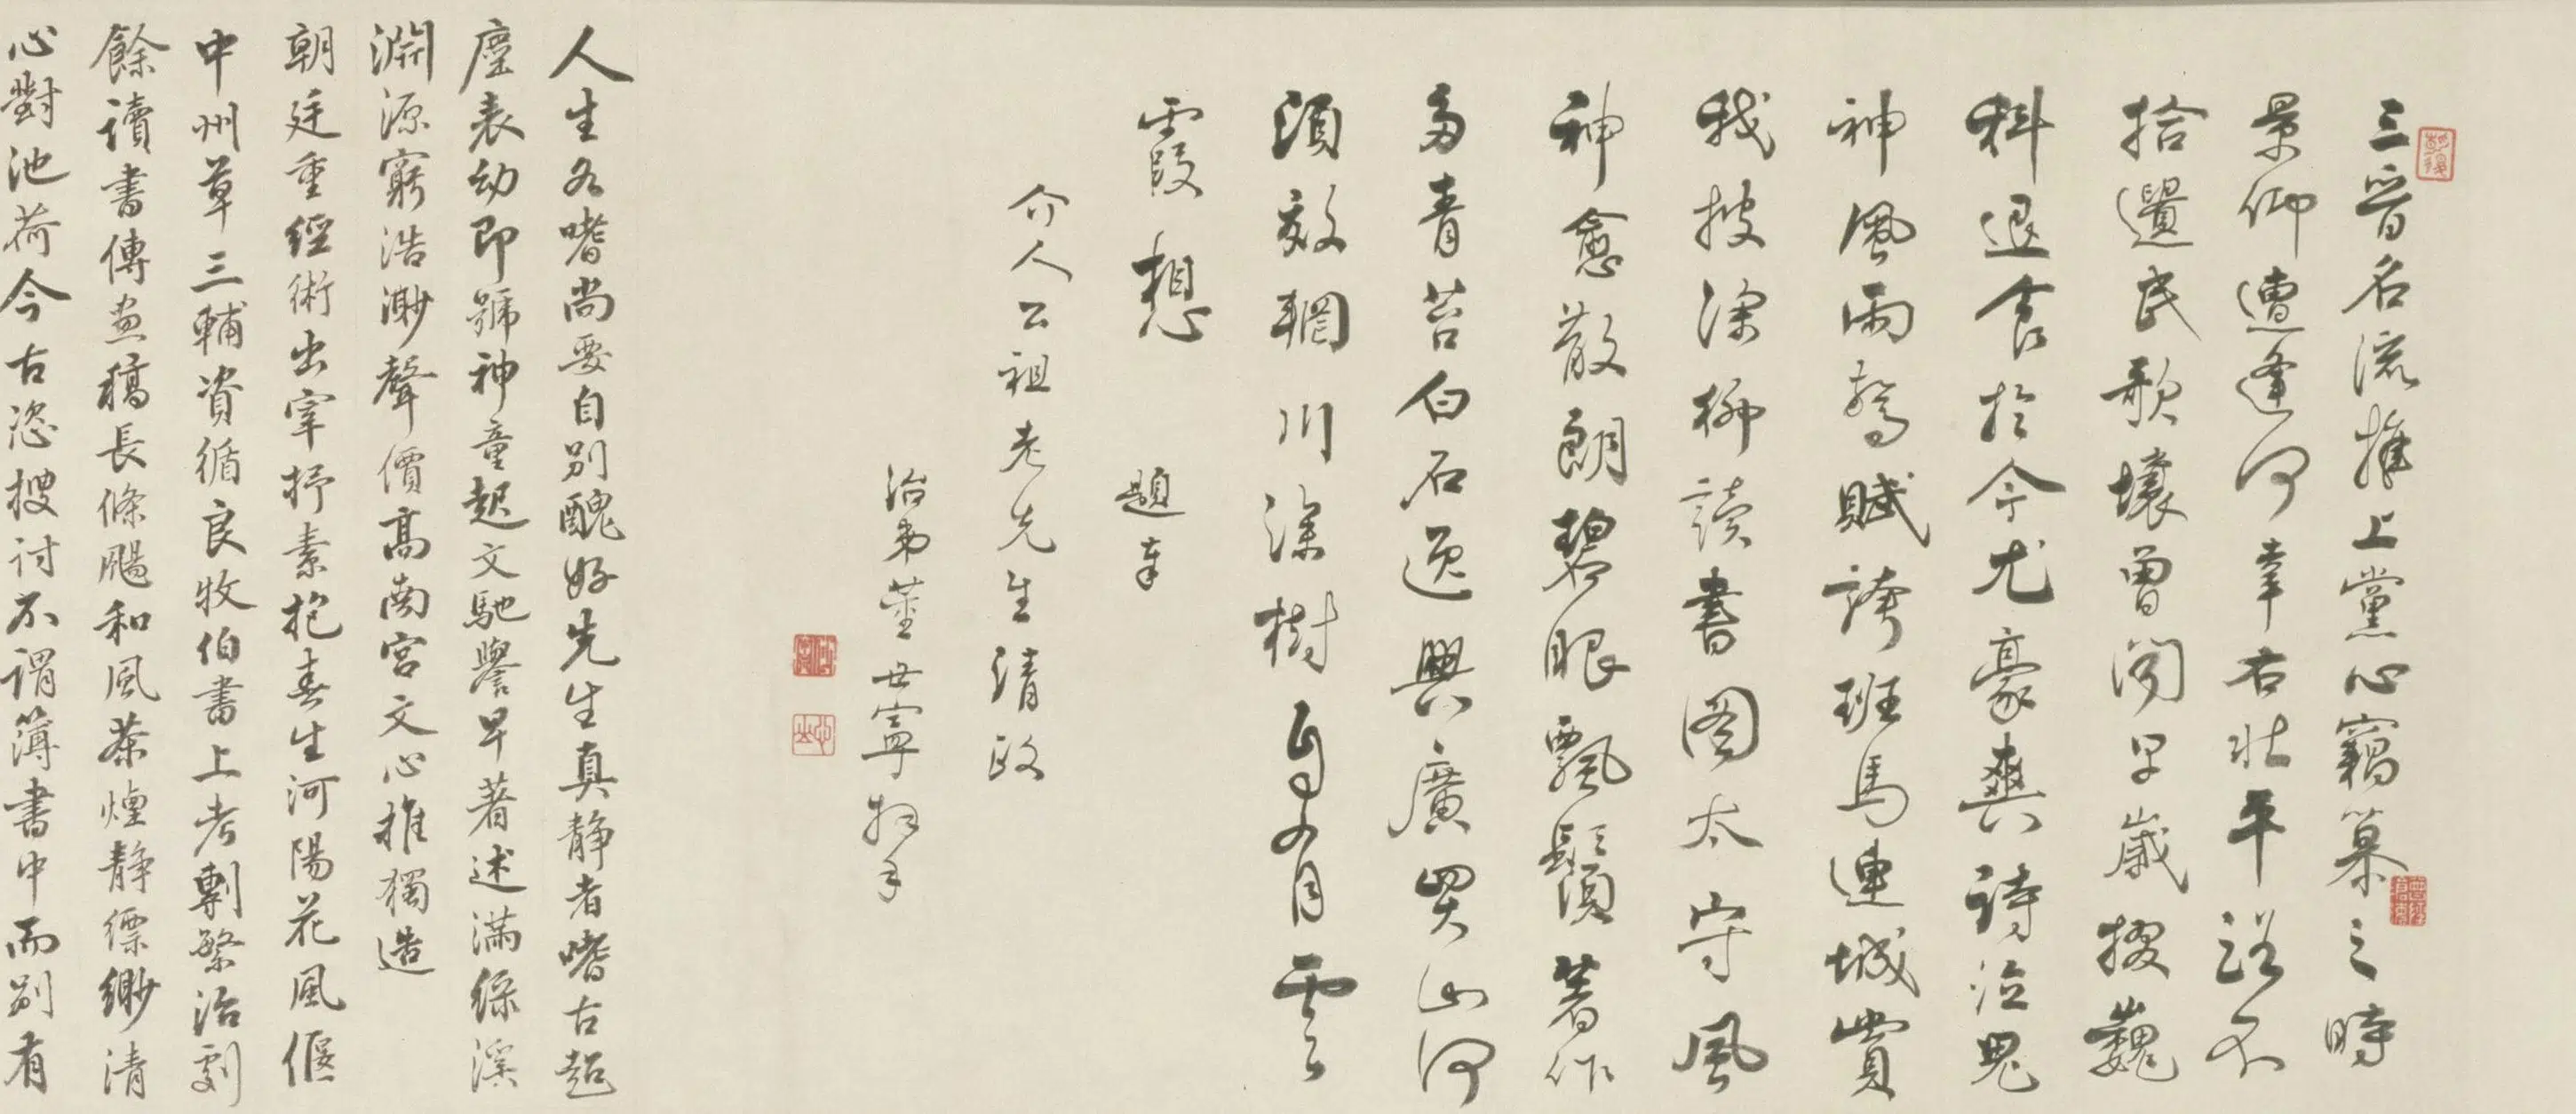 三晉名流推上黨心竊慕之時
景仰遭逢何幸右北平說不
拾遺民歌壤曾聞早歲掇巍
科退食於今尤豪爽詩泣鬼
神風雨驚賦誇班馬連城賞
我披深柳讀書圖太守風
神愈散朗碧眼飄鬚著作
多青苔白石逸興廣買山何
須效輞川深樹自有雲
霞想 題奉
介人公祖老先生清政
治弟董世寧拜手
人生各嗜尚要自別醜好先生真靜者嗜古超
塵表幼即號神童起文馳譽早著述滿綠溪
淵源窮浩渺聲價高南宮文心推獨造
朝廷重經術出宰抒素抱春生河陽花風偃
中州草三輔資循良牧伯書上考剸繁治劇
餘讀書傳畫稿長條颺和風茶煙靜縹緲清
心對池荷今古恣搜討不謂簿書中而別有